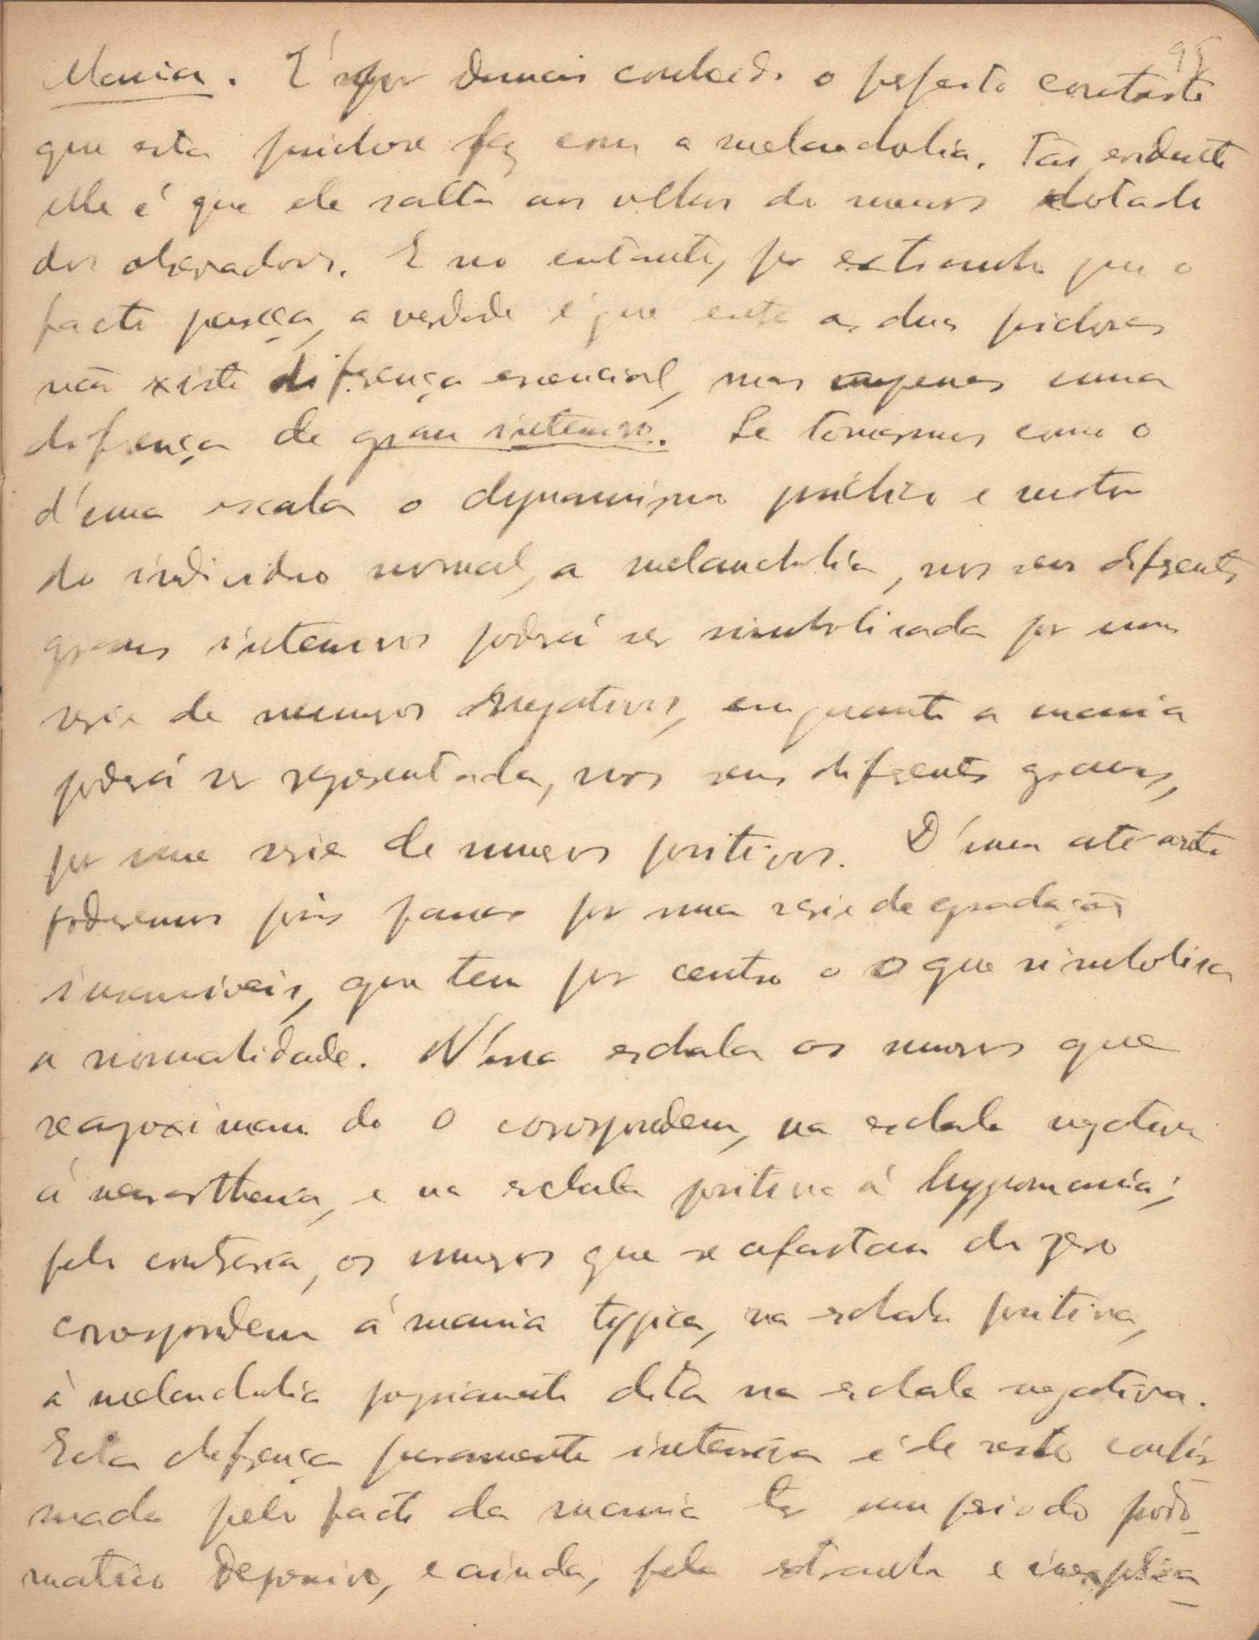 95
Mania. E' por demais conhecido o perfeito contraste
que esta psichose faz com a melancholia. Tão evidente
elle é que ele salta aos olhos do menos dotado
dos observadores. E no entanto, por extranho que o
facto pareça, a verdade é que entre as duas psichoses
não existe diferença essencial, mas apenas uma
diferença de grau intensivo. Se tomarmos como o
d'uma escala o dynamismo psichico e motor
do individuo normal, a melancholia, nos seus diferentes
graus intensivos poderá ser simbolisada por uma
serie de numeros negativos, emquanto a mania
poderá ser representada, nos seus diferentes graus,
por uma serie de numeros positivos. D'uma até outra
poderemos pois passar por uma serie de gradações
insensiveis, que tem por centro o 0 que simbolisa
a normalidade. N'essa eschala os numeros que
se aproximam do 0 correspondem, na eschala negativa
á neurasthenia, e na eschala positiva á hypomania;
pelo contrario, os numeros que se afastam do zero
correspondem á mania typica, na eschala positiva,
à melancholia propriamente dita na eschala negativa.
Esta diferença puramente intensiva é de resto confir-
mada pelo facto da mania ter um periodo prodo-
matico depressivo, e ainda, pela extranha e inexplica-